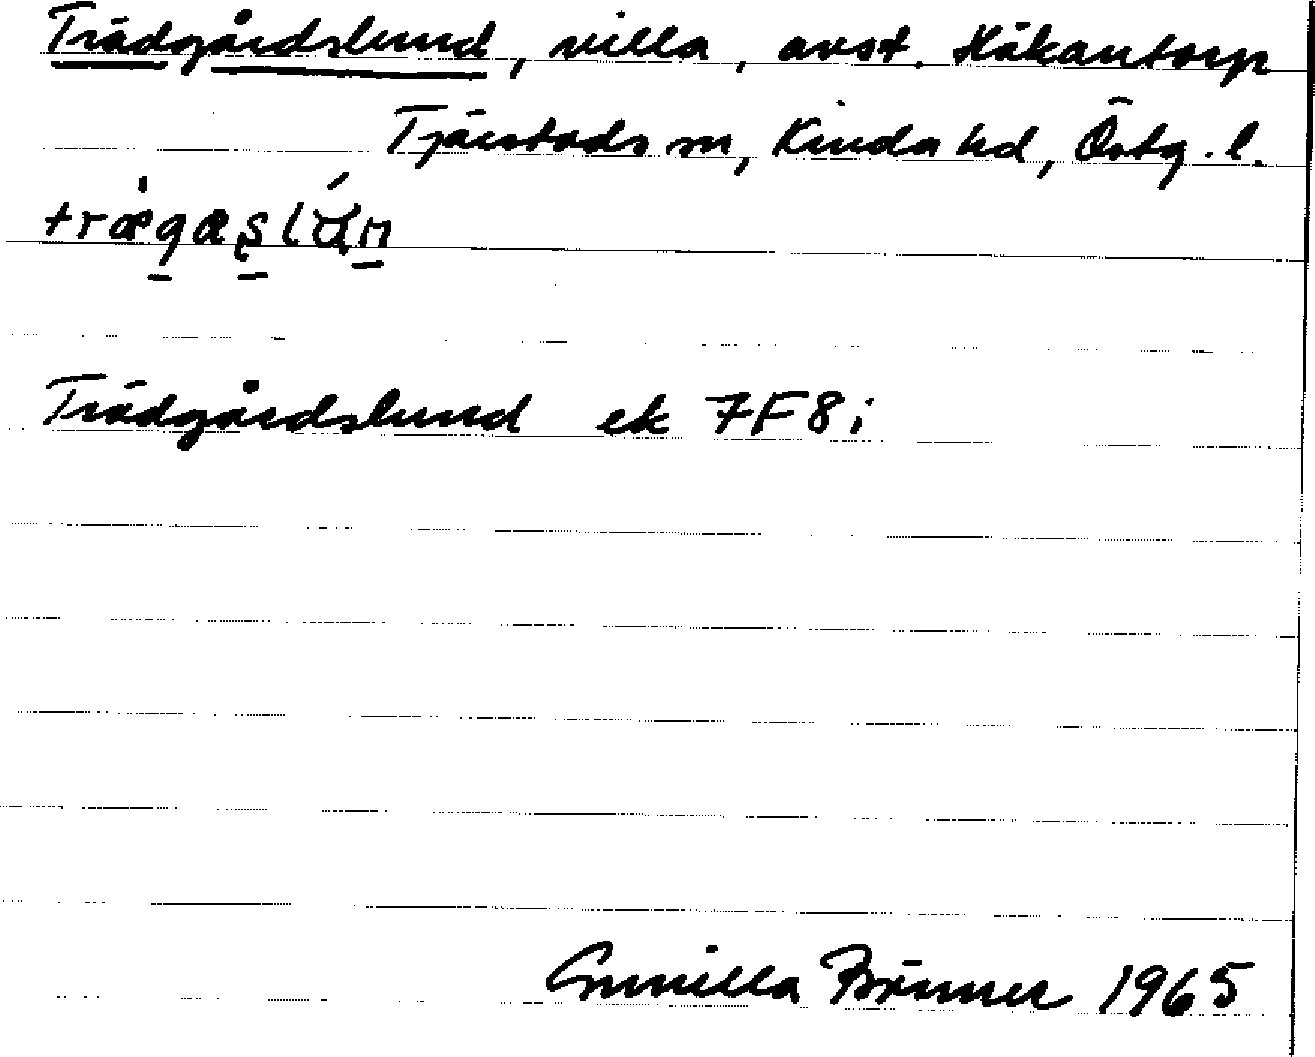 Trädgårdslund, villa, avst. Håkantorp
Tjärstads sn, Kinda hd, Östg. l.
Trädgårdslund ek 7F8i
Gunilla Brömer 1965